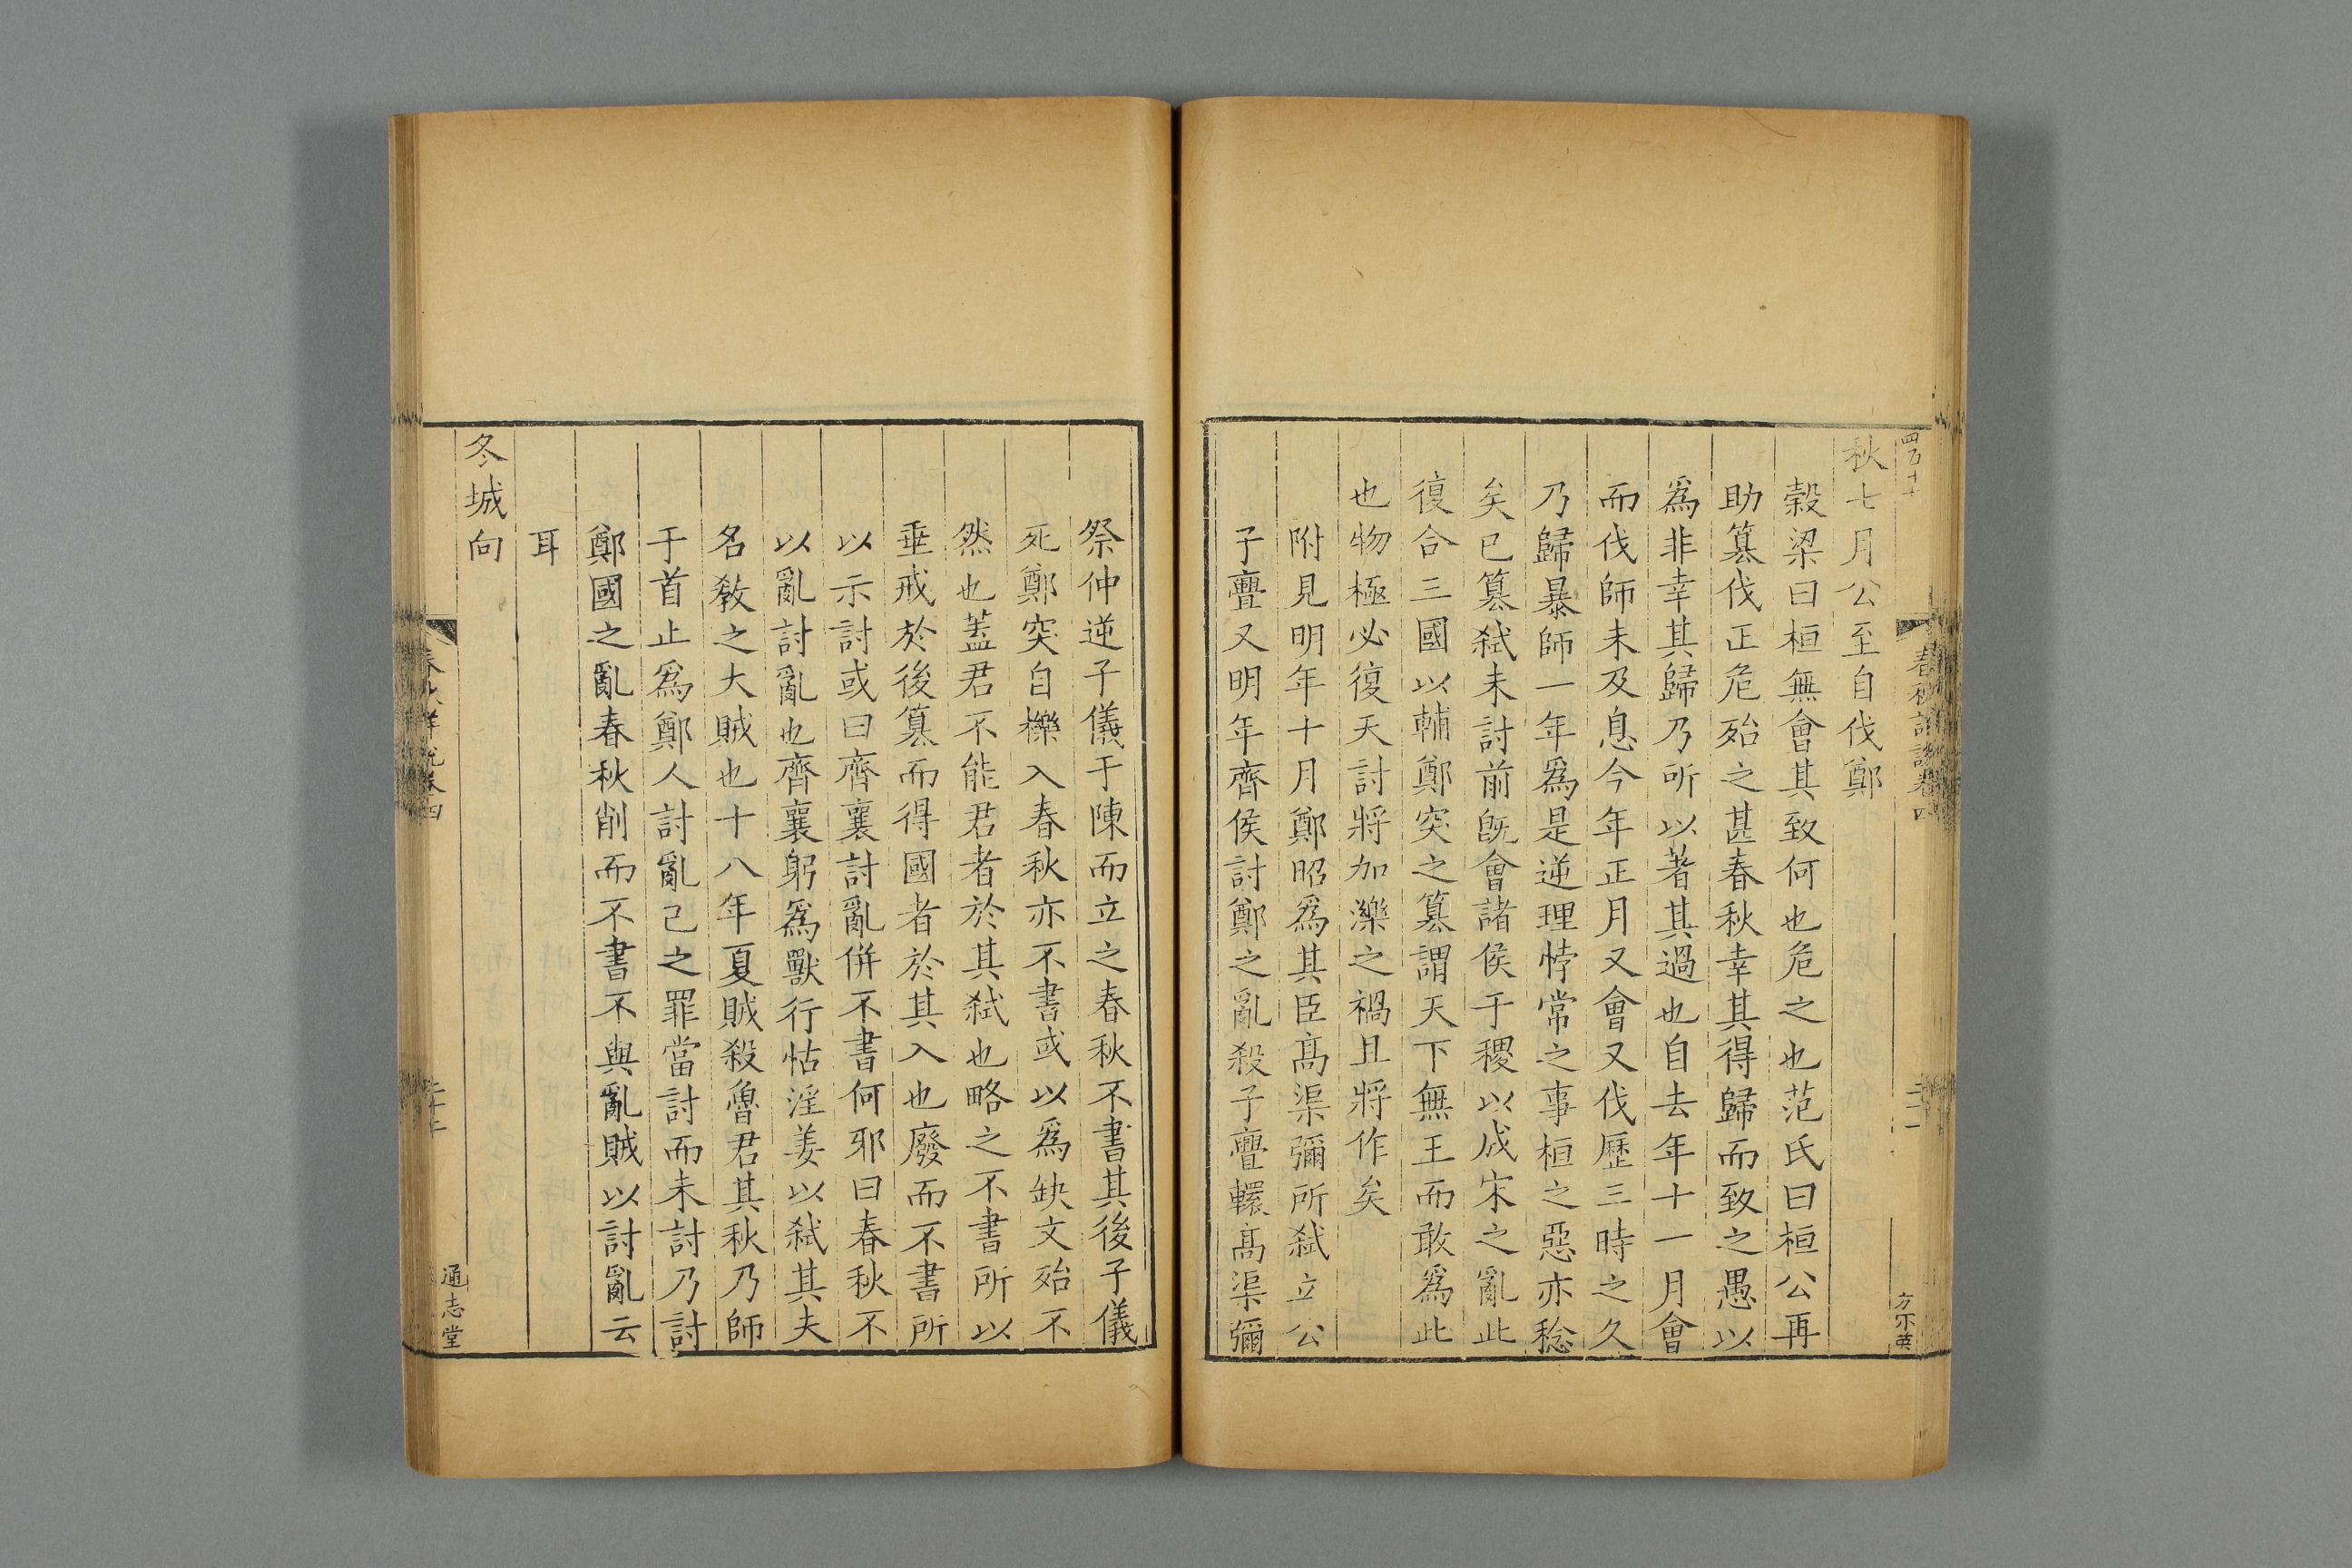 秋七月公至自伐鄭
穀梁曰桓無會其致何也危之也范氏曰桓公再
助簒伐正危殆之甚春秋幸其得歸而致之愚以
爲非幸其歸乃所以著其過也自去年十一月會
而伐師未及息今年正月又會又伐歷三時之久
乃歸暴師一年爲是逆理悖常之事桓之惡亦稔
矣已簒弑未討前旣會諸侯于稷以成宋之亂此
復合三國以輔鄭突之簒謂天下無王而敢爲此
也物極必復天討將加濼之禍且將作矣
附見明年十月鄭昭爲其臣髙渠彌所弑立公
子亹又明年齊侯討鄭之亂殺子亹轘髙渠彌
祭仲逆子儀于陳而立之春秋不書其後子儀
死鄭突自櫟入春秋亦不書或以爲缺文殆不
然也蓋君不能君者於其弑也略之不書所以
垂戒於後簒而得國者於其入也廢而不書所
以示討或曰齊襄討亂併不書何邪曰春秋不
以亂討亂也齊襄躬爲獸行怙淫姜以弑其夫
名教之大賊也十八年夏賊殺魯君其秋乃師
于首止爲鄭人討亂己之罪當討而未討乃討
鄭國之亂春秋削而不書不與亂賊以討亂云
耳
冬城向
通志堂